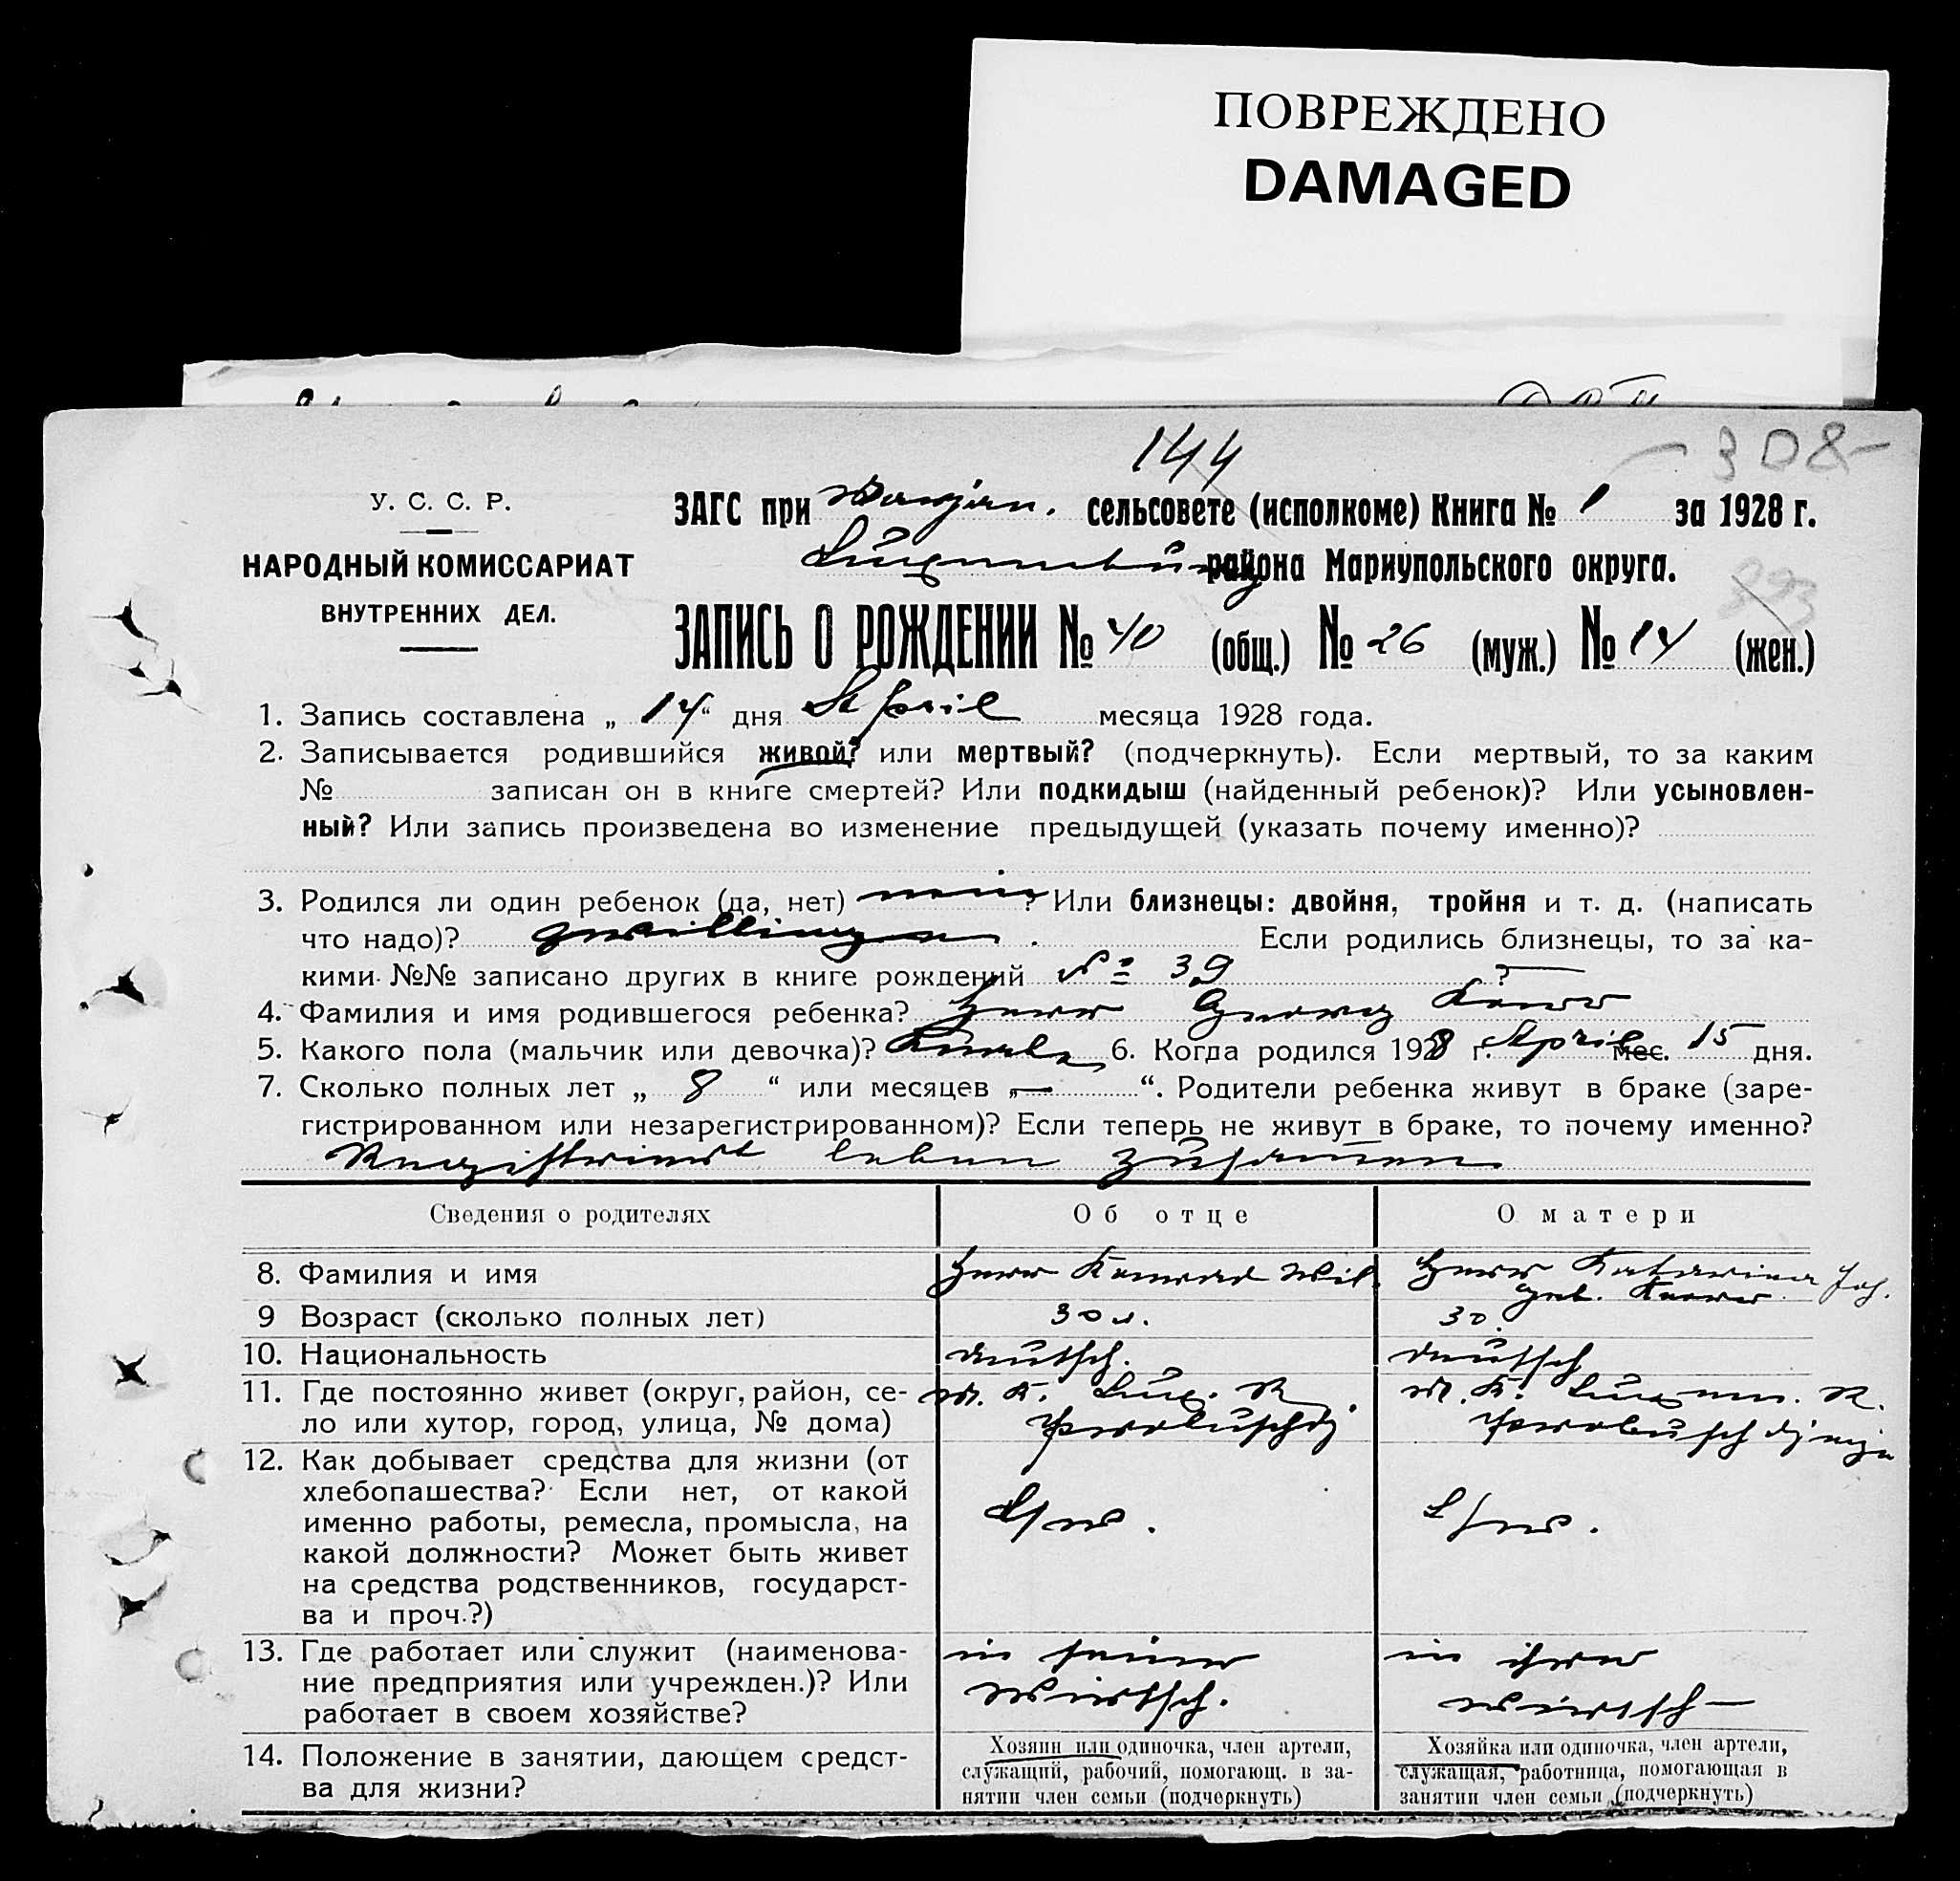 ПОВРЕЖДЕНО
DAMAGED
144
- 308 -
У. С. С. Р.
НАРОДНЫЙ КОМИССАРИАТ
ВНУТРЕННИХ ДЕЛ.
ЗАГС при сельсовете (исполкоме) Книга № 1 за 1928 г.
района Мариупольского округа.
893
ЗАПИСЬ О РОЖДЕНИИ № 40 (общ.) № 26 (муж.) № 14 (жен.)
1. Запись составлена „ 17 “ дня April месяца 1928 года.
2. Записывается родившийся живой? или мертвый? (подчеркнуть). Если мертвый, то за каким
№ записан он в книге смертей? Или подкидыш (найденный ребенок)? Или усыновлен-
ный? Или запись произведена во изменение предыдущей (указать почему именно)?
3. Родился ли один ребенок (да, нет) nein ? Или близнецы: двойня, тройня и т. д. (написать
что надо)? zwillingen . Если родились близнецы, то за ка-
кими №№ записано других в книге рождений № 39 ?
4. Фамилия и имя родившегося ребенка? Herr Georg Konr
5. Какого пола (мальчик или девочка)? Knabe 6. Когда родился 1928 г. April мес. 15 дня.
7. Сколько полных лет „ 8 “ или месяцев „ — “. Родители ребенка живут в браке (заре-
гистрированном или незарегистрированном)? Если теперь не живут в браке, то почему именно?
Registriert leben zusamen
Сведения о родителях Об отце О матери
8. Фамилия и имя Herr Konrad Wil. Herr Katarina Joh.
geb.
9 Возраст (сколько полных лет) 30 30.
10. Национальность deutsch. deutsch
11. Где постоянно живет (округ, район, се- M. K. Lux. R M. K. Luxem. R.
ло или хутор, город, улица, № дома)
12. Как добывает средства для жизни (от
хлебопашества? Если нет, от какой
именно работы, ремесла, промысла, на
какой должности? Может быть живет
на средства родственников, государст-
ва и проч.?)
13. Где работает или служит (наименова- in seiner in ihrer
ние предприятия или учрежден.)? Или Wirtsch. Wirtsch —
работает в своем хозяйстве?
14. Положение в занятии, дающем средст-
ва для жизни?
Хозяин или одиночка, член артели,
служащий, рабочий, помогающ. в за-
нятии член семьи (подчеркнуть)
Хозяйка или одиночка, член артели,
служащая, работница, помогающая в
занятии член семьи (подчеркнуть)